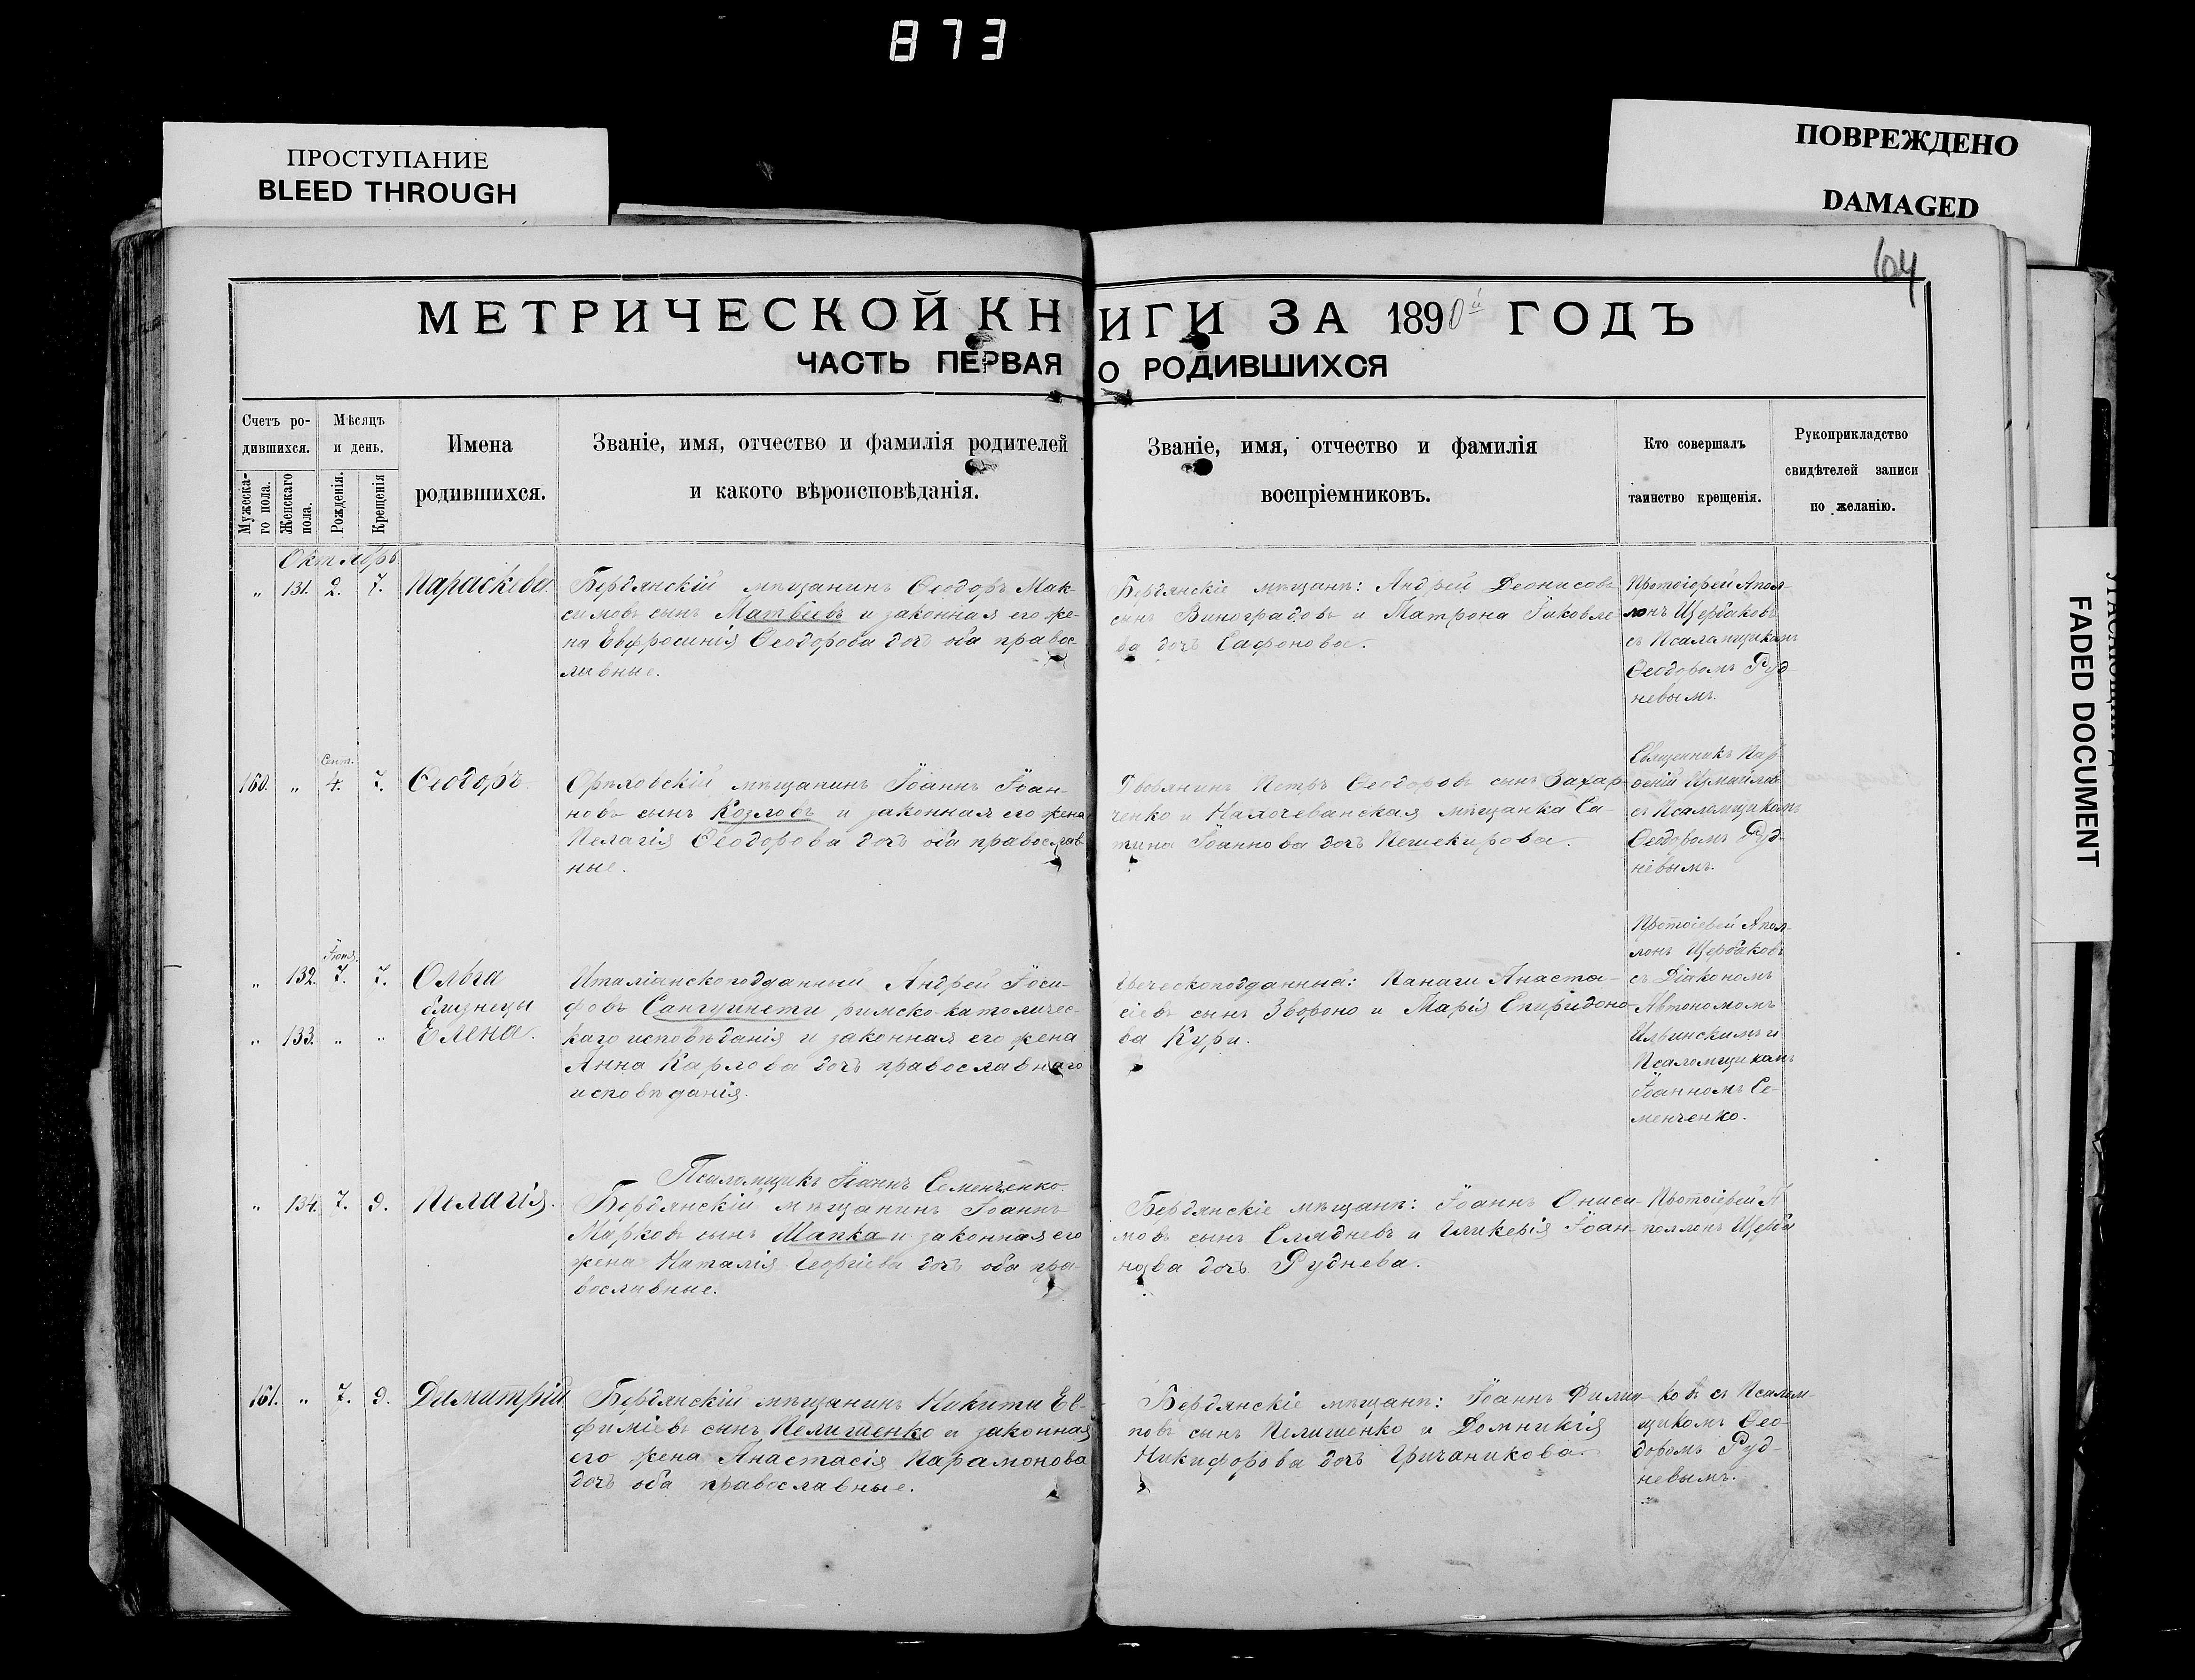 873
ПРОСТУПАНИЕ
BLEED THROUGH
ПОВРЕЖДЕНО
DAMAGED
64
МЕТРИЧЕСКОЙ КНИГИ ЗА 1890й ГОДЪ
ЧАСТЬ ПЕРВАЯ О РОДИВШИХСЯ
Счетъ ро-
дившихся.
Мужеска-
го пола.
Женскаго
пола.
Мѣсяцъ
и день.
Рожденія.
Крещенія
Имена
родившихся.
Званіе, имя, отчество и фамилія родителей
и какого вѣроисповѣданія.
Званіе, имя, отчество и фамилія
воспріемниковъ.
Кто совершалъ
таинство крещенія.
Рукоприкладство
свидѣтелей записи
по желанію.
Октябрь
„ 131. 2. 7. Параскева.
Бердянскій мѣщанинъ Ѳеодоръ Мак-
симовъ сынъ Матвѣевъ и законная его же-
на Евфросинія Ѳеодорова дочь оба правос-
лавные.
Бердянскіе мѣщане: Андрей Деонисовъ
сынъ Виноградовъ и Матрона Іаковле-
ва дочь Сафонова.
Протоіерей Апол-
лонъ Щербаковъ
съ Псаломщикомъ
Ѳеодоромъ Руд-
невымъ.
Сент.
160. „ 4. 7. Ѳеодоръ
Орѣховскій мѣщанинъ Іоаннъ Іоан-
новъ сынъ Козловъ и законная его жена
Пелагія Ѳеодорова дочь оба православ-
ные.
Дворянинъ Петръ Ѳеодоровъ сынъ Захар-
ченко и Нахичеванская мѣщанка Са-
тина Іоаннова дочь Пешекирова.
Священникъ Пар-
ѳеній Измайловъ
съ Псаломщикомъ
Ѳеодоромъ Руд-
невымъ.
„ 132. 7. 7. Ольга
близнецы
„ 133. „ „ Елена.
Италіанскоподданный Андрей Іоси-
фовъ Сангуинети римско-католичес-
каго исповѣданія и законная его жена
Анна Карлова дочь православнаго
исповѣданія.
Греческоподданные: Панаги Анаста-
сіевъ сынъ Звороно и Марія Спиридоно-
ва Кури.
Протоіерей Апол-
лонъ Щербаковъ
съ Діакономъ
Автономомъ
Ильинскимъ и
Псаломщикомъ
Іоанномъ Се-
менченко.
Псаломщикъ Іоаннъ Семенченко.
„ 134. 7. 9. Пелагія.
Бердянскій мѣщанинъ Іоаннъ
Марковъ сынъ Шапка и законная его
жена Наталія Георгіева дочь оба пра-
вославные.
Бердянскіе мѣщане: Іоаннъ Ониси-
мовъ сынъ Слядневъ и Гликерія Іоан-
нова дочь Руднева.
Протоіерей А-
поллонъ Щерба
161. „ 7. 9. Димитрій
Бердянскій мѣщанинъ Никита Ев-
фиміевъ сынъ Пелишенко и законная
его жена Анастасія Парамонова
дочь оба православные.
Бердянскіе мѣщане: Іоаннъ Филип-
повъ сынъ Пелишенко и Домникія
Никифорова дочь Гричаникова.
ковъ съ Псалом-
щикомъ Ѳео-
доромъ Руд-
невымъ.
FADED DOCUMENT